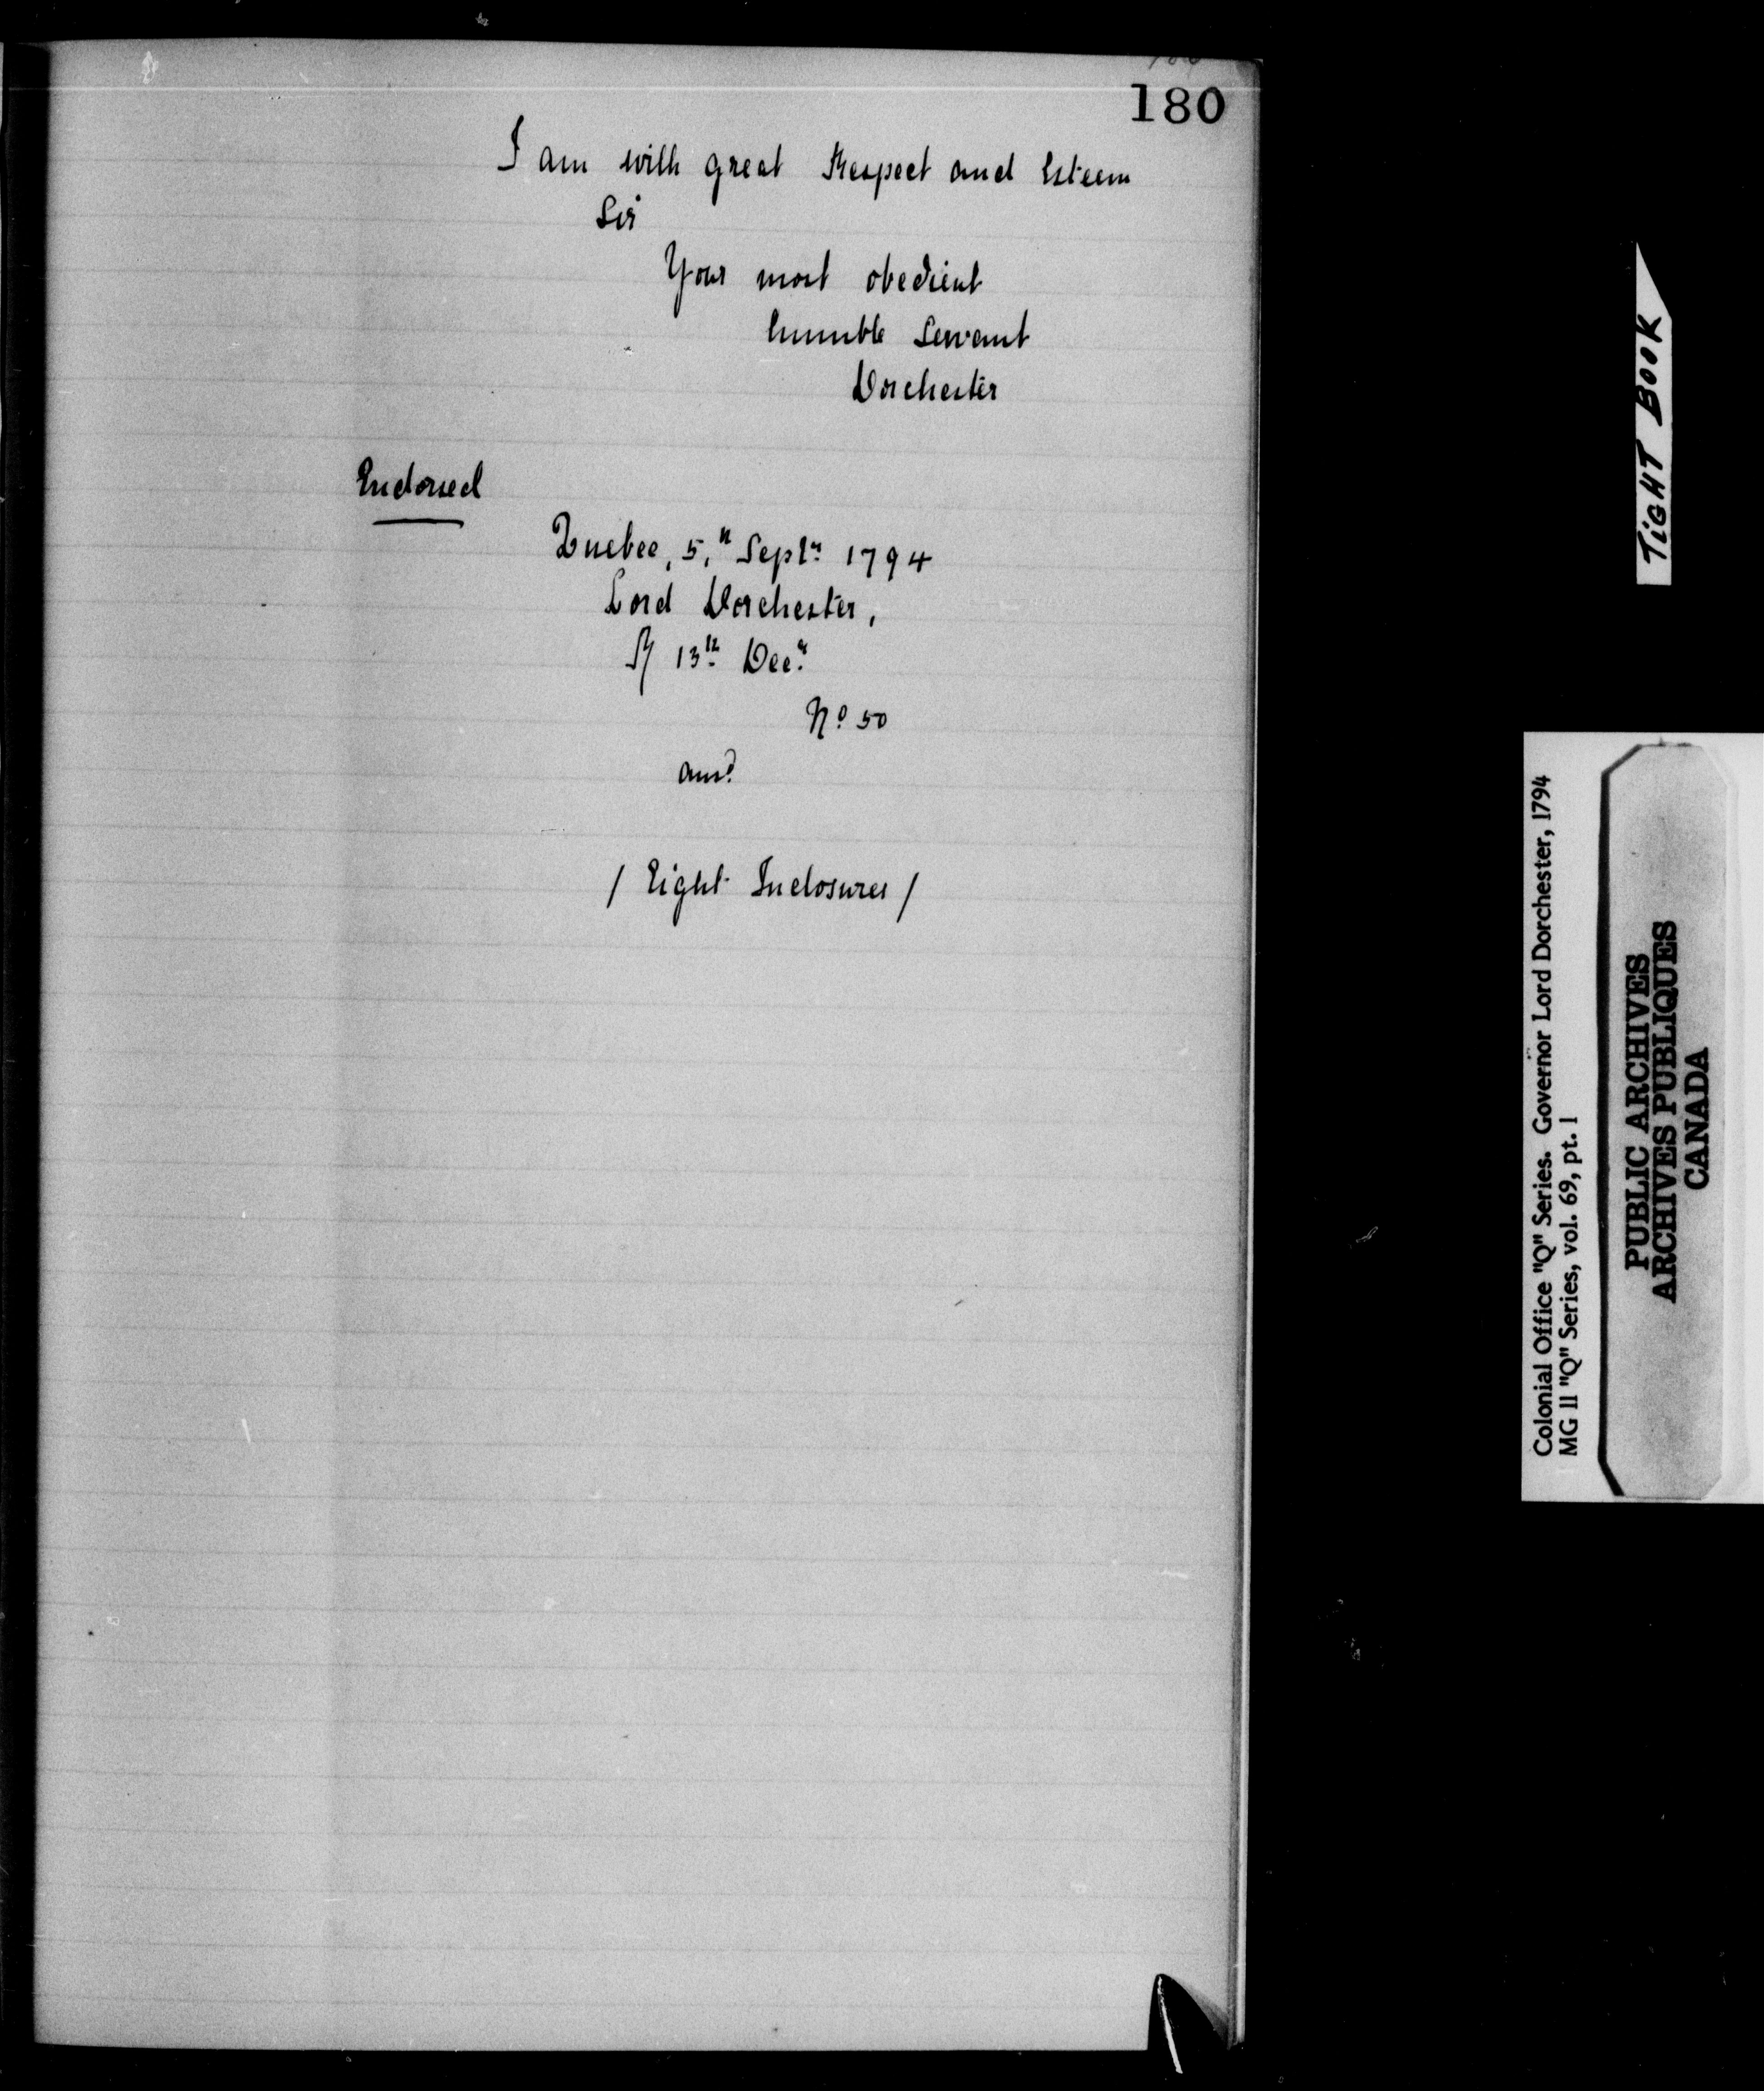 180
I am with great Respect and Esteem
Sir
Your most obedient
humble Servant
Dorchester
Endorsed
Quebec, 5,th Septr 1794
Lord Dorchester,
R 13th Decr
No 50
ansd
/ Eight Inclosures /
TIGHT BOOK
Colonial Office "Q" Series. Governor Lord Dorchester, 1794
MG 11 "Q" Series, vol. 69, pt. 1
PUBLIC ARCHIVES
ARCHIVES PUBLIQUES
CANADA